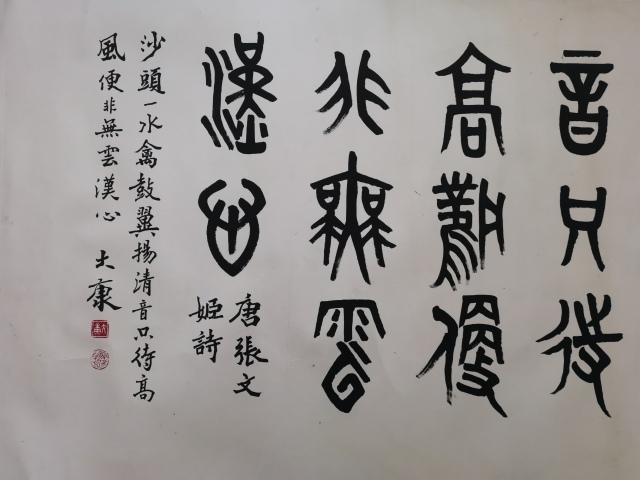 音只待
高風便
非無雲
漢心
唐張文
姬詩
沙頭一水禽鼓翼揚清音只待高
風便非無雲漢心
大康